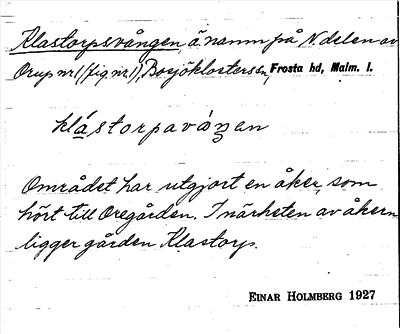 Klastorpsvången, ä namn på N. delen av
Orup nr 1 (fig. nr 1), Bosjöklosters sn, Frosta hd, Malm. l.
klástorpavàŋen
Området har utgjort en åker, som
hört till Oregården. I närheten av åkern
ligger gården Klastorp.
EINAR HOLMBERG 1927